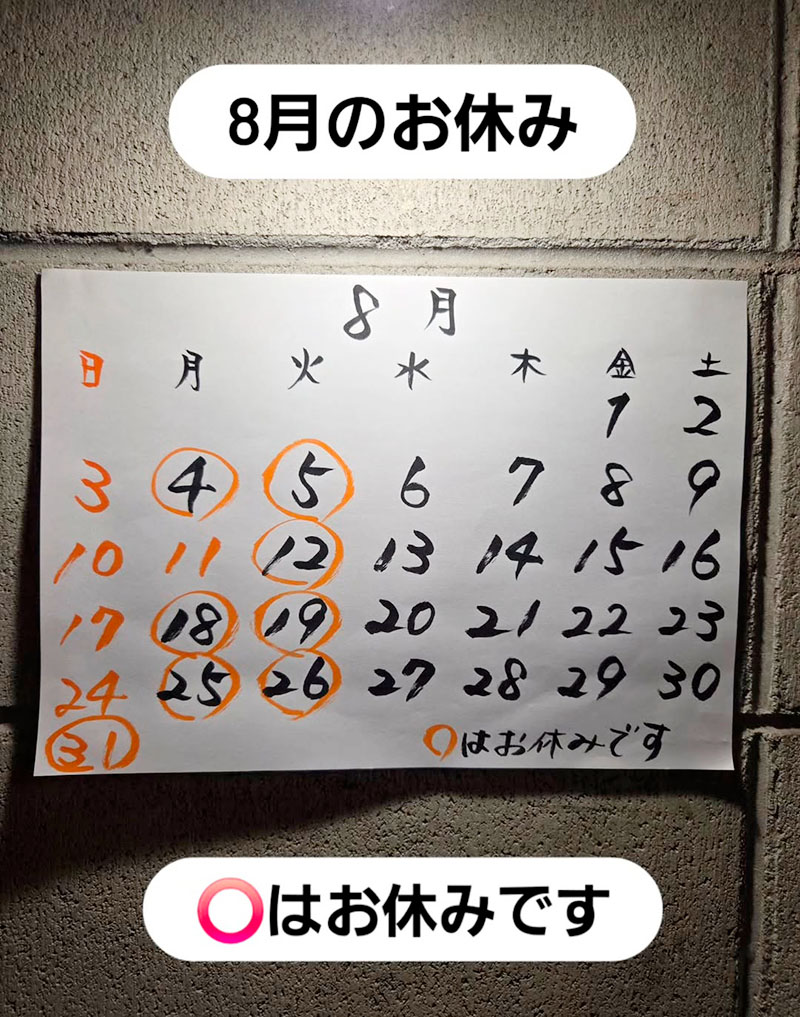 8月のお休み
8月
日 月 火 水 木 金 土
1 2
3 4 5 6 7 8 9
10 11 12 13 14 15 16
17 18 19 20 21 22 23
24 25 26 27 28 29 30
31 ○はお休みです
⭕はお休みです